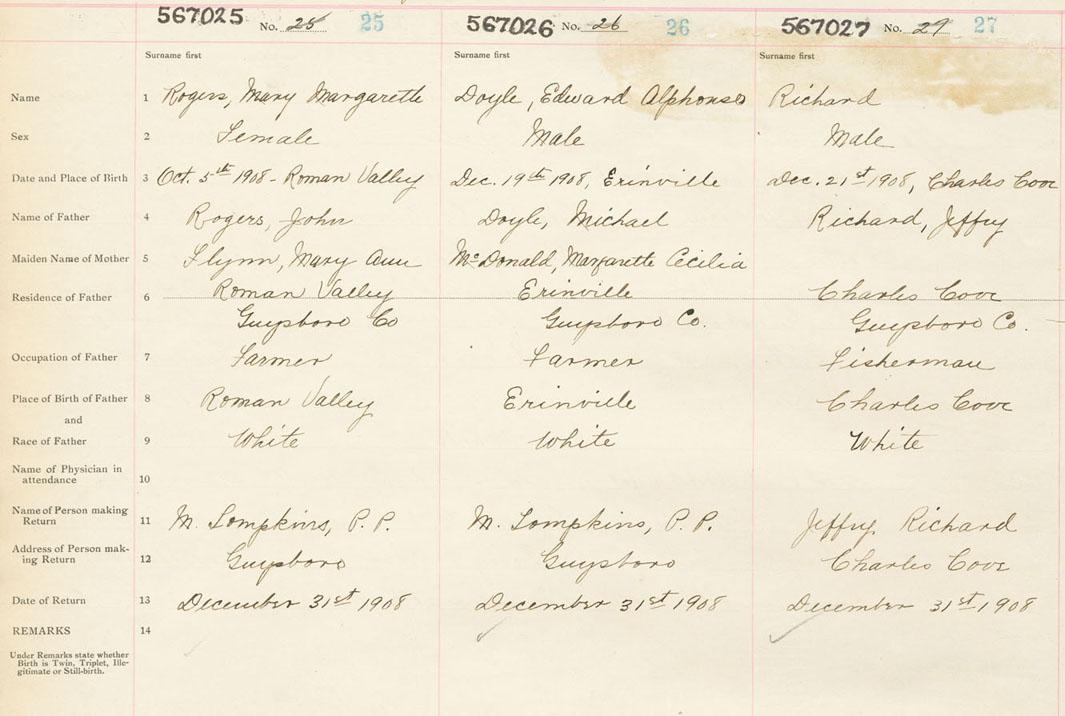 567025 No. 25 25 567026 No. 26 26 567027 No. 27 27
Surname first Surname first Surname first
Name 1 Rogers, Mary Margarette Doyle, Edward Alphonso Richard
Sex 2 Female Male Male
Date and Place of Birth 3 Oct. 5th 1908 - Roman Valley Dec. 19th 1908, Erinville Dec. 21st 1908, Charles Cove
Name of Father 4 Rogers, John Doyle, Michael Richard, Jeffry
Maiden Name of Mother 5 Flynn, Mary Ann McDonald, Margarette Cecilia
Residence of Father 6 Roman Valley Erinville Charles Cove
Guysboro Co Guysboro Co. Guysboro Co.
Occupation of Father 7 Farmer Farmer Fisherman
Place of Birth of Father 8 Roman Valley Erinville Charles Cove
and
Race of Father 9 White White White
Name of Physician in
attendance 10
Name of Person making
Return 11 M. Tompkins, P. P. M. Tompkins, P. P. Jeffry Richard
Address of Person mak-
ing Return 12 Guysboro Guysboro Charles Cove
Date of Return 13 December 31st 1908 December 31st 1908 December 31st 1908
REMARKS 14
Under Remarks state whether
Birth is Twin, Triplet, Ille-
gitimate or Still-birth.